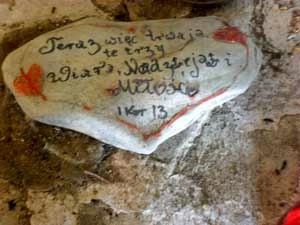 Teraz więc trwają
te trzy
Wiara, Nadzieja i
Miłość
1 Kor 13